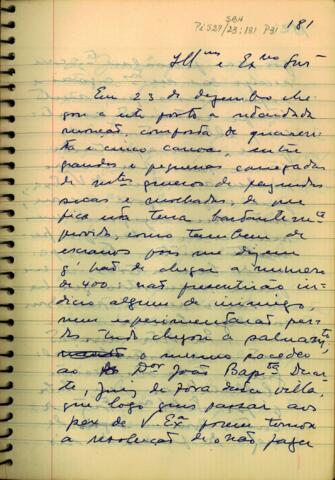 SBH
Pi 527/28:181 P31
181
Ill.mo e Ex.mo Snr
Em 23 de dezembro che
gou a este porto a referidade
monção, composta de quaren
ta e cinco canoas, entre
grandes e pequenas carregadas
de mtos generos de fazendas
secas e molhadas, de que
fica esta terra bastantemte
provida, como tambem de
escravos pois me dizem
q' hão de chegar a numero
de 400: não presentirão in
dicio algum de inimigo,
nem experimentarão per
da, tudo chegou a salvamto,
o mesmo sucedeo
ao Dor João Bapta Duar
te, Juiz de Fora desta villa,
que logo quis passar aos
pez de V Exa porem tomou
a resolução de o não fazer